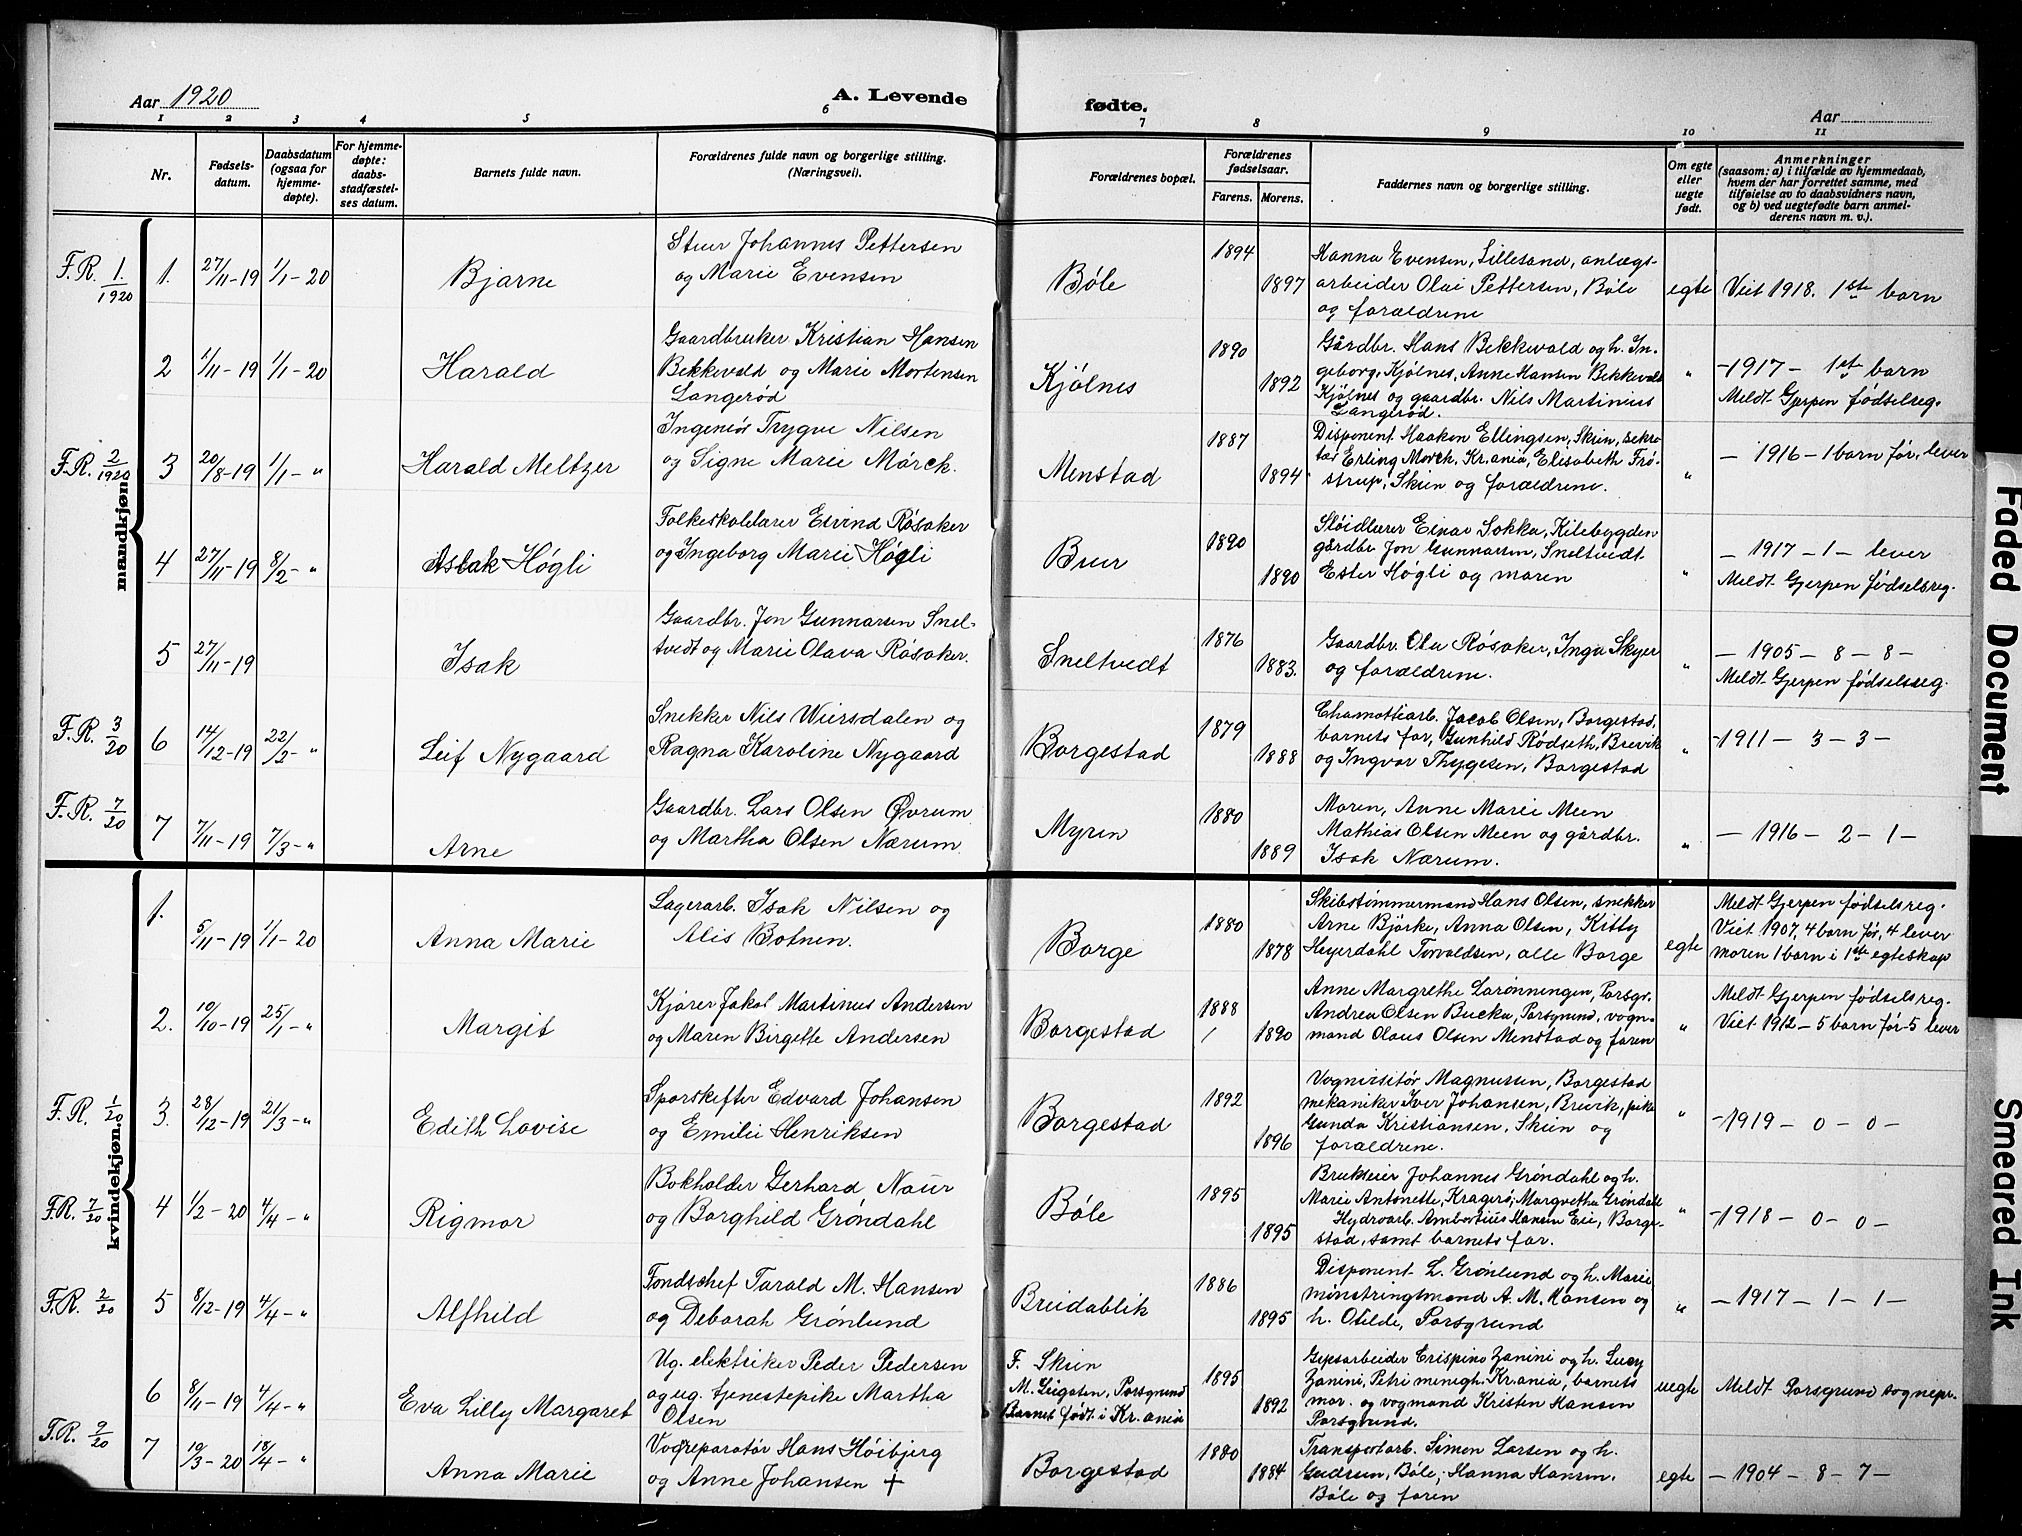 Aar 1920
A. Levende
fødte.
Aar
1 2 3 4 5 6 7 8 9 10 11
Nr.
Fødsels-
datum.
Daabsdatum
(ogsaa for
hjemme-
døpte).
For hjemme-
døpte:
daabs-
stadfæstel-
ses datum.
Barnets fulde navn.
Forældrenes fulde navn og borgerlige stilling.
(Næringsvei).
Forældrenes bopæl.
Forældrenes
fødselsaar.
Farens. Morens.
Faddernes navn og borgerlige stilling.
Om egte
eller
uegte
født.
Anmerkninger
(saasom: a) i tilfælde av hjemmedaab,
hvem der har forrettet samme, med
tilføielse av to daabsvidners navn,
og b) ved uegtefødte barn anmel-
derens navn m. v.).
mandkjøn.
F.R. 1/1920
1. 27/11-19 1/1-20
Bjarne
Stuer Johannes Pettersen
og Marie Evensen
Bøle
1894
1897
Hanna Evensen, Lillesand, anlægs-
arbeider Olai Pettersen, Bøle
og forældrene
egte
Viet 1918. 1ste barn
2 1/11-19 1/1-20
Harald
Gaardbruker Kristian Hansen
Bekkevold og Marie Mortensen
Langerød
Kjølnes
1890
1892
Gårdbr. Hans Bekkevold og h. In-
geborg, Kjølnes, Anne Hansen Bekkevold
Kjølnes og gaardbr. Nils Martinius
Langerød.
"
-1917- 1st barn
Meldt Gjerpen fødselreg.
F.R. 2/1920
3 20/8-19 1/1- "
Harald Meltzer
Ingeniør Trygve Nilsen
og Signe Marie Mørck.
Menstad
1887
1894
Disponent Haakon Ellingsen, Skien, sekre-
tær Erling Mørck, Kr.ania, Elisabeth Frø-
strup, Skien og forældrene.
"
- 1916 - 1 barn før, lever
4 27/11-19 8/2- "
Aslak Høgli
Folkeskolelærer Eivind Røsaker
og Ingeborg Marie Høgli
Buer
1890
1890
Sløidlærer Einar Sokka, Kilebygden
gårdbr Jon Gunnarsen, Sneltvedt
Ester Høgli og moren
"
- 1917 - 1 - lever
Meldt Gjerpen fødselsreg.
5 27/11-19
Isak
Gaardbr. Jon Gunnarsen Snel-
tvedt og Marie Olava Røsaker.
Sneltvedt
1876
1883.
Gaardbr. Ole Røsaker, Inga Skyer
og forældrene.
"
- 1905 - 8 - 8 -
Meldt Gjerpen fødselsreg.
F.R. 3/20
6 14/12-19 22/2- "
Leif Nygaard
Snekker Nils Wiersdalen og
Ragna Karoline Nygaard
Borgestad
1879
1888
Chamottearb. Jacob Olsen, Borgestad,
barnets far, Gunhild Rødseth, Brevik
og Ingvar Thygesen, Borgestad
"
-1911 - 3 - 3 -
F.R. 7/20
7 7/11-19 7/3- "
Arne
Gaardbr. Lars Olsen Øvrum
og Martha Olsen Nærum.
Myren
1880
1889
Moren, Anne Marie Meen
Mathias Olsen Meen og gårdbr.
Isak Nærum.
"
- 1916 - 2 - 1 -
kvindekjøn.
1. 5/11-19 1/1-20
Anna Marie
Lagerarb. Isak Nilsen og
Alis Botnen.
Borge
1880
1878
Skibstømmermand Hans Olsen, snekker
Arne Bjørke, Anna Olsen, Kitty
Heyerdahl Torvaldsen, alle Borge
egte
Meldt Gjerpen fødselsreg.
Viet 1907, 4 barn før, 4 lever
moren 1 barn i 1ste egteskap
2. 10/10-19 25/1- "
Margit
Kjører Jakob Martinus Andersen
og Maren Birgette Andersen
Borgestad
1888
1890
Anne Margrethe Larønningen, Porsgr.
Andrea Olsen Bucka, Porsgrund, vogn-
mand Olaus Olsen Menstad og faren
"
Meldt Gjerpen fødselsreg.
Viet 1912 - 5 barn før - 5 lever
F.R. 1/20
3. 28/12-19 21/3- "
Edith Lovise
Sporskifter Edvard Johansen
og Emilie Henriksen
Borgestad
1892
1896
Vognvisitør Magnussen, Borgestad
mekaniker Iver Johansen, Brevik, pike
Gunda Kristiansen, Skien og
forældrene.
"
-1919 - 0 - 0 -
F.R. 7/20
4 1/2-20 4/4- "
Rigmor
Bokholder Gerhard Naur
og Borghild Grøndahl
Bøle
1895
1895
Brukseier Johannes Grøndahl og h.
Marie Antonette, Kragerø, Margrethe Grøndahl
Hydroarb. Ambortius Hansen Eie, Borge-
stad, samt barnets far.
"
-1918 - 0 - 0 -
F.R. 2/20
5 8/12-19 4/4- "
Alfhild
Fondschef Tarald M. Hansen
og Deborah Grønlund
Breidablik
1886
1895
Disponent L. Grønlund og h. Marie
mønstringsmand A. M. Hansen og
h. Otilde, Porsgrund
"
- 1917 - 1 - 1 -
6 8/11-19 4/4- "
Eva Lilly Margaret
Ug. elektriker Peder Pedersen
og ug. tjenestepike Martha
Olsen
F. Skien
M. Porsgrund
Barnet født i Kr.ania
1895
1892
Gipsarbeider Crispino Zanini og h. Lucy
Zanini, Petri menigh. Kr.ania, barnets
mor. og vogmand Kristen Hansen
Porsgrund.
uegte
Meldt Porsgrund sognepr.
F.R. 9/20
7 19/3-20 18/4- "
Anna Marie
Vogreparatør Hans Høibjerg
og Anne Johansen +
Borgestad
1880
1884
Transportarb. Simon Larsen og h.
Gudrun, Bøle, Hanna Hansen.
Bøle og faren
egte
- 1904 - 8 - 7 -
Faded Document
Smeared Ink